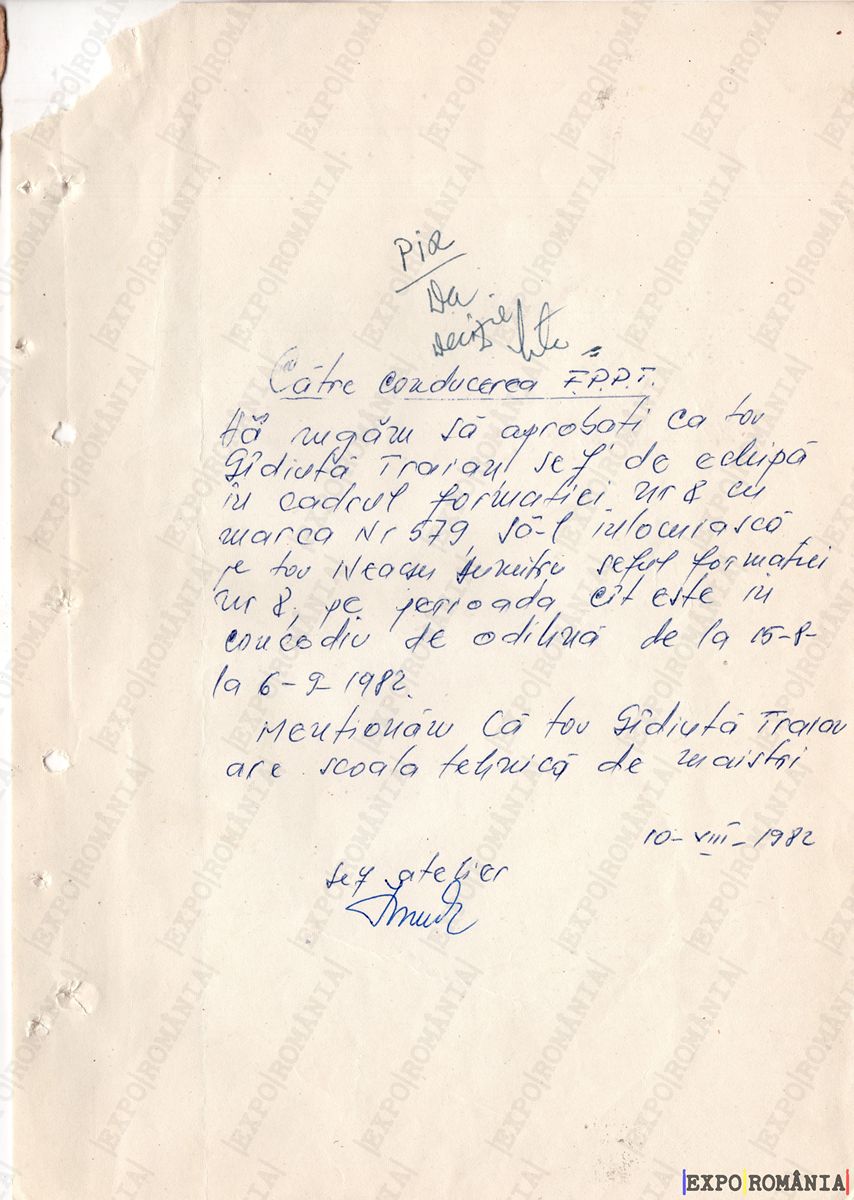 Da
decizie
Către conducerea F.P.P.T.
Vă rugăm să aprobati ca tov
Gîdiută Traian, sef de echipă
în cadrul formatiei nr 8 cu
marca Nr 579, să-l inlocuiască
pe tov Neacsu Dumitru seful formatiei
nr 8, pe perioada cît este in
concediu de odihnă de la 15-8-
la 6-9-1982.
Mentionăm că tov Gîdiută Traian
are scoala tehnică de maistri
10-VIII-1982
sef atelier
EXPO ROMÂNIA